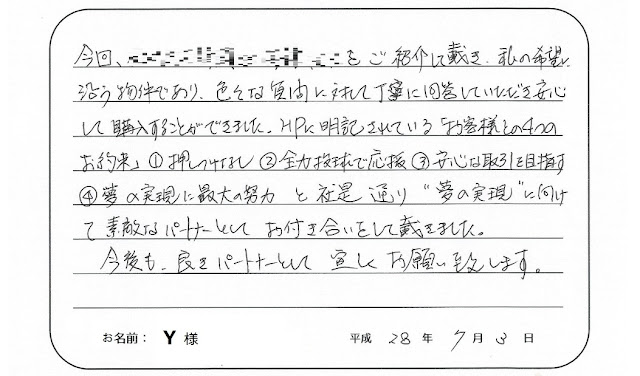 今回、をご紹介して戴き、私の希望に
沿う物件であり、色々な質問に対して丁寧に回答していただき安心
して購入することができました。HPに明記されている「お客様との4つの
お約束」①押しつけなし②全力投球で応援③安心な取引を目指す
④夢の実現に最大の努力 と社是通り“夢の実現”に向け
て素敵なパートナーとしてお付き合いをして戴きました。
今後も、良きパートナーとして宜しくお願い致します。
お名前： Y 様 平成 28 年 7 月 3 日